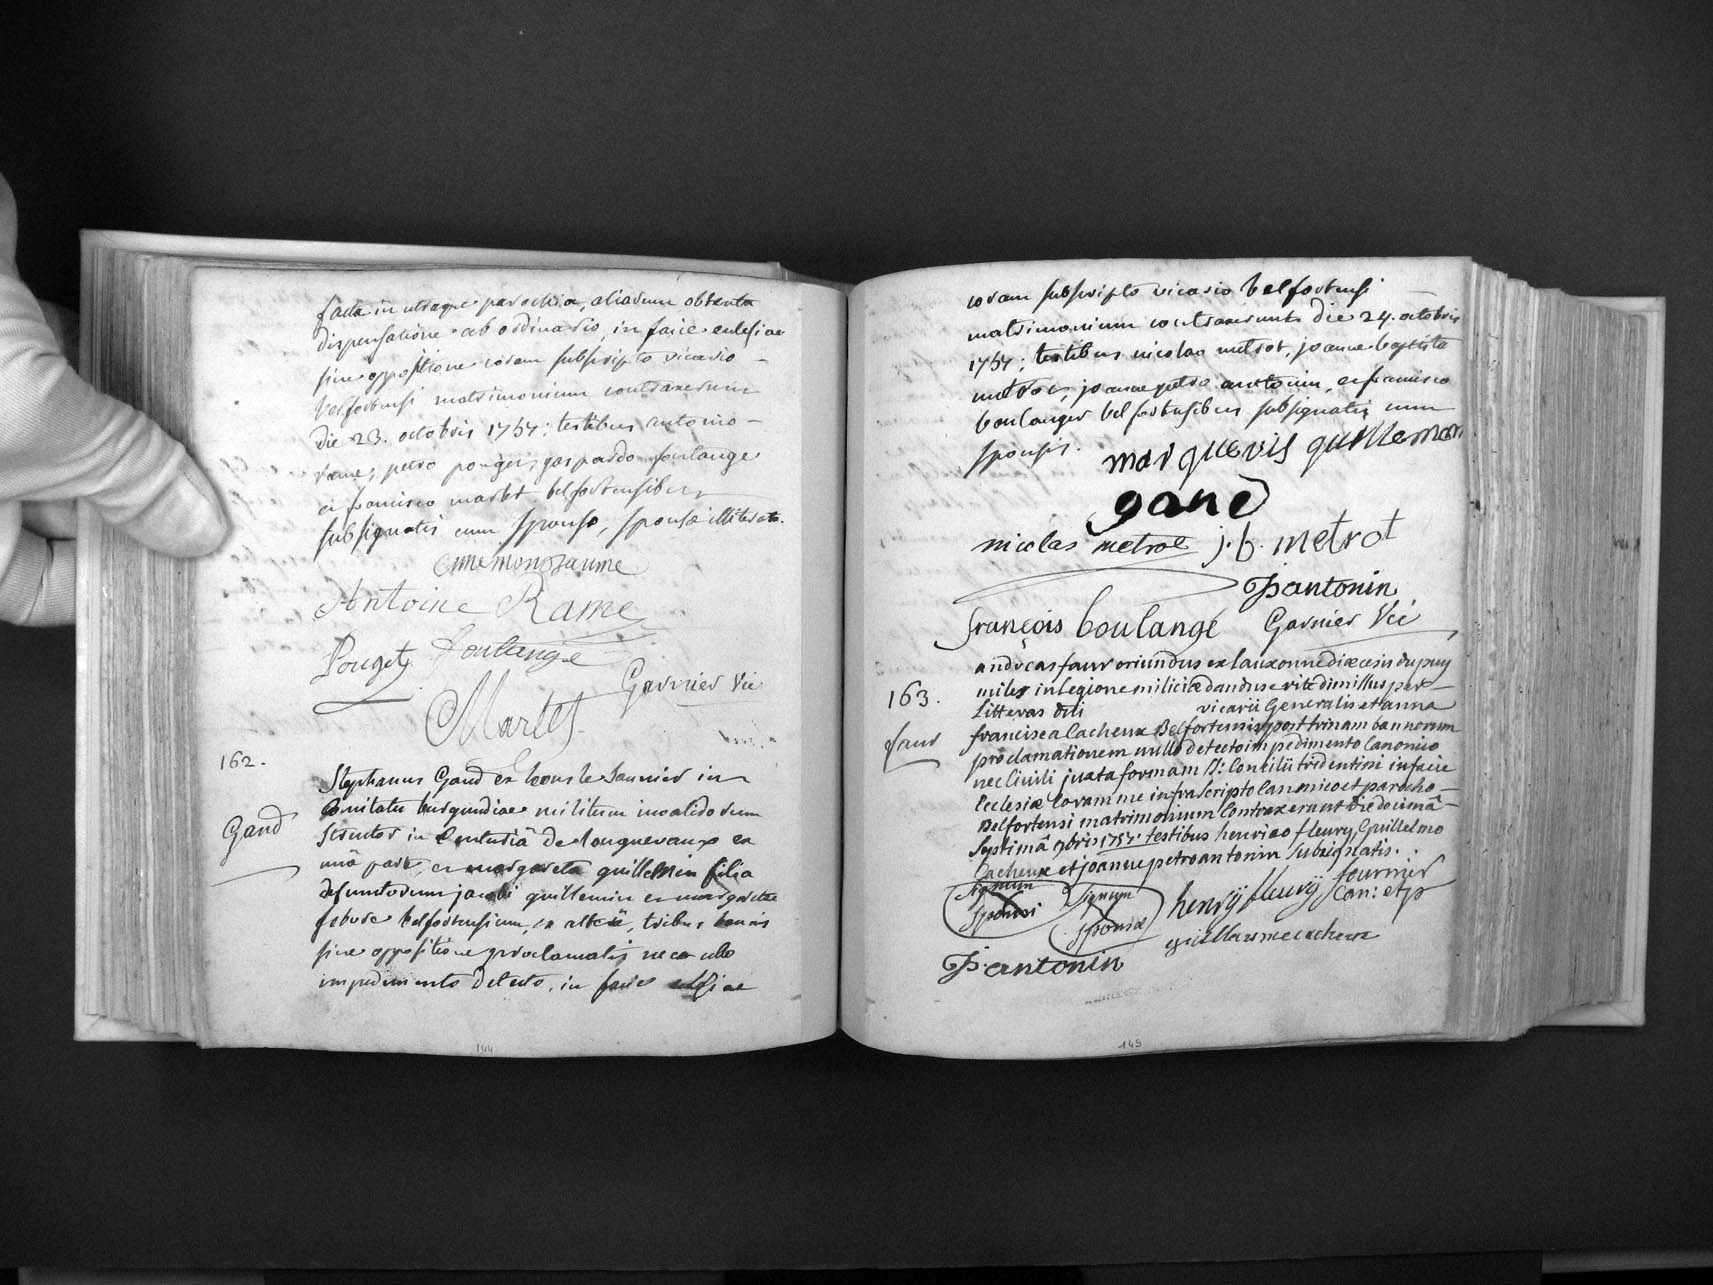 facta in utraque parochia, aliarum obtenta
dispensatione ab ordinario, in facie eclesiae
sine oppositione coram subscripto vicario -
belfortensi matrimonium contraxerunt
die 23. octobris 1757: testibus antonio -
rame, petro pouget, gaspardo foulange
et francisco martet belfortensibus
subsignatis cum sponso, sponsa illiterata.
Antoine Rame
Pouget foulange
Garnier Vic
Martet
162.
Gand
Stephanus Gand ex Lons le Saunier in
Comitatu burgundiae militum invalidorum
in Centuriâ de longuevaux ex
unâ parte, et margareta guillemin filia
defunctorum jacobi guillemin et margaretae
belfortensium, ex alterâ, tribus bannis
sine oppositione proclamatis nec ullo
impedimento detecto, in facie eclesiae
144
coram subscripto vicario belfortensi
matrimonium contraxerunt die 24. octobris
1757; testibus nicolao metrot, joanne baptista
metrot, joanne petro antonin, et francisco
boulanger belfortensibus subsignatis cum
sponsis. marguerit guillemin
gand
nicolas metrot j. b. metrot
JP antonin
françois boulangé Garnier Vic
163.
faur
andreas faur oriundus ex lauxonne diœcesis du puy
miles in legione militiæ dandus e rite dimissus per
litteras d̃ni vicarii Generalis et anna
francisca Cacheux Belfortensis, post trinam bannorum
proclamationem nullo detecto impedimento Canonico
nec Civili juxta formam SS: Concilii tridentini in facie
Ecclesiæ Coram me infra Scripto Canonico et parocho -
Belfortensi matrimonium Contraxerunt die decimâ -
Septimâ 9bris 1757 testibus henrico fleury, Guillelmo
Cacheux et joanne petro antonin subsignatis.
Signum sponsi
Signum sponsæ
henrÿ fleurÿ
fournier Can: et p
guillaume cacheux
JP antonin
145